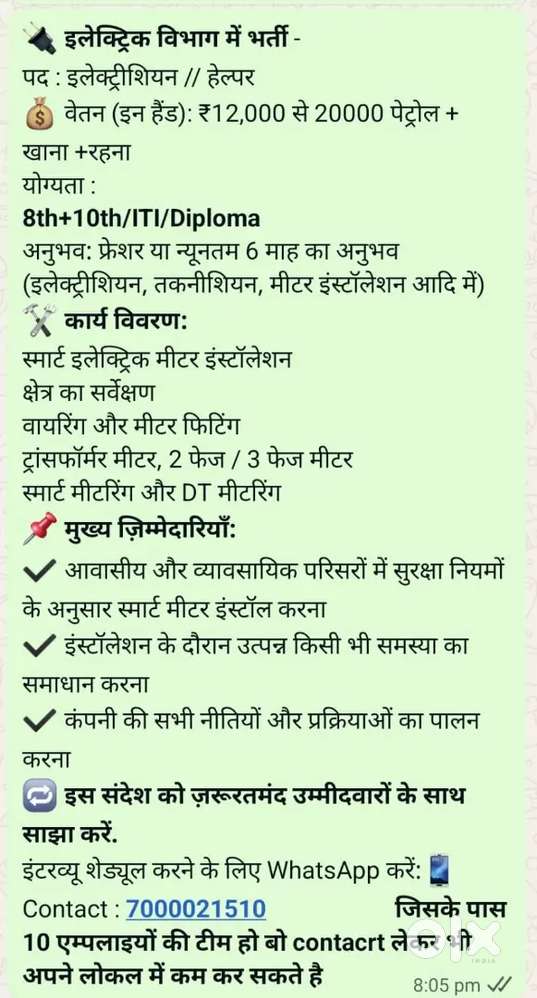 इलेक्ट्रिक विभाग में भर्ती -
पद : इलेक्ट्रीशियन // हेल्पर
वेतन (इन हैंड): ₹12,000 से 20000 पेट्रोल +
खाना +रहना
योग्यता :
8th+10th/ITI/Diploma
अनुभव: फ्रेशर या न्यूनतम 6 माह का अनुभव
(इलेक्ट्रीशियन, तकनीशियन, मीटर इंस्टॉलेशन आदि में)
कार्य विवरण:
स्मार्ट इलेक्ट्रिक मीटर इंस्टॉलेशन
क्षेत्र का सर्वेक्षण
वायरिंग और मीटर फिटिंग
ट्रांसफॉर्मर मीटर, 2 फेज / 3 फेज मीटर
स्मार्ट मीटरिंग और DT मीटरिंग
मुख्य ज़िम्मेदारियाँ:
आवासीय और व्यावसायिक परिसरों में सुरक्षा नियमों
के अनुसार स्मार्ट मीटर इंस्टॉल करना
इंस्टॉलेशन के दौरान उत्पन्न किसी भी समस्या का
समाधान करना
कंपनी की सभी नीतियों और प्रक्रियाओं का पालन
करना
इस संदेश को ज़रूरतमंद उम्मीदवारों के साथ
साझा करें.
इंटरव्यू शेड्यूल करने के लिए WhatsApp करें:
Contact : 7000021510 जिसके पास
10 एम्पलाइयों की टीम हो बो contacrt लेकर भी
अपने लोकल में कम कर सकते है
olx
INDIA
8:05 pm